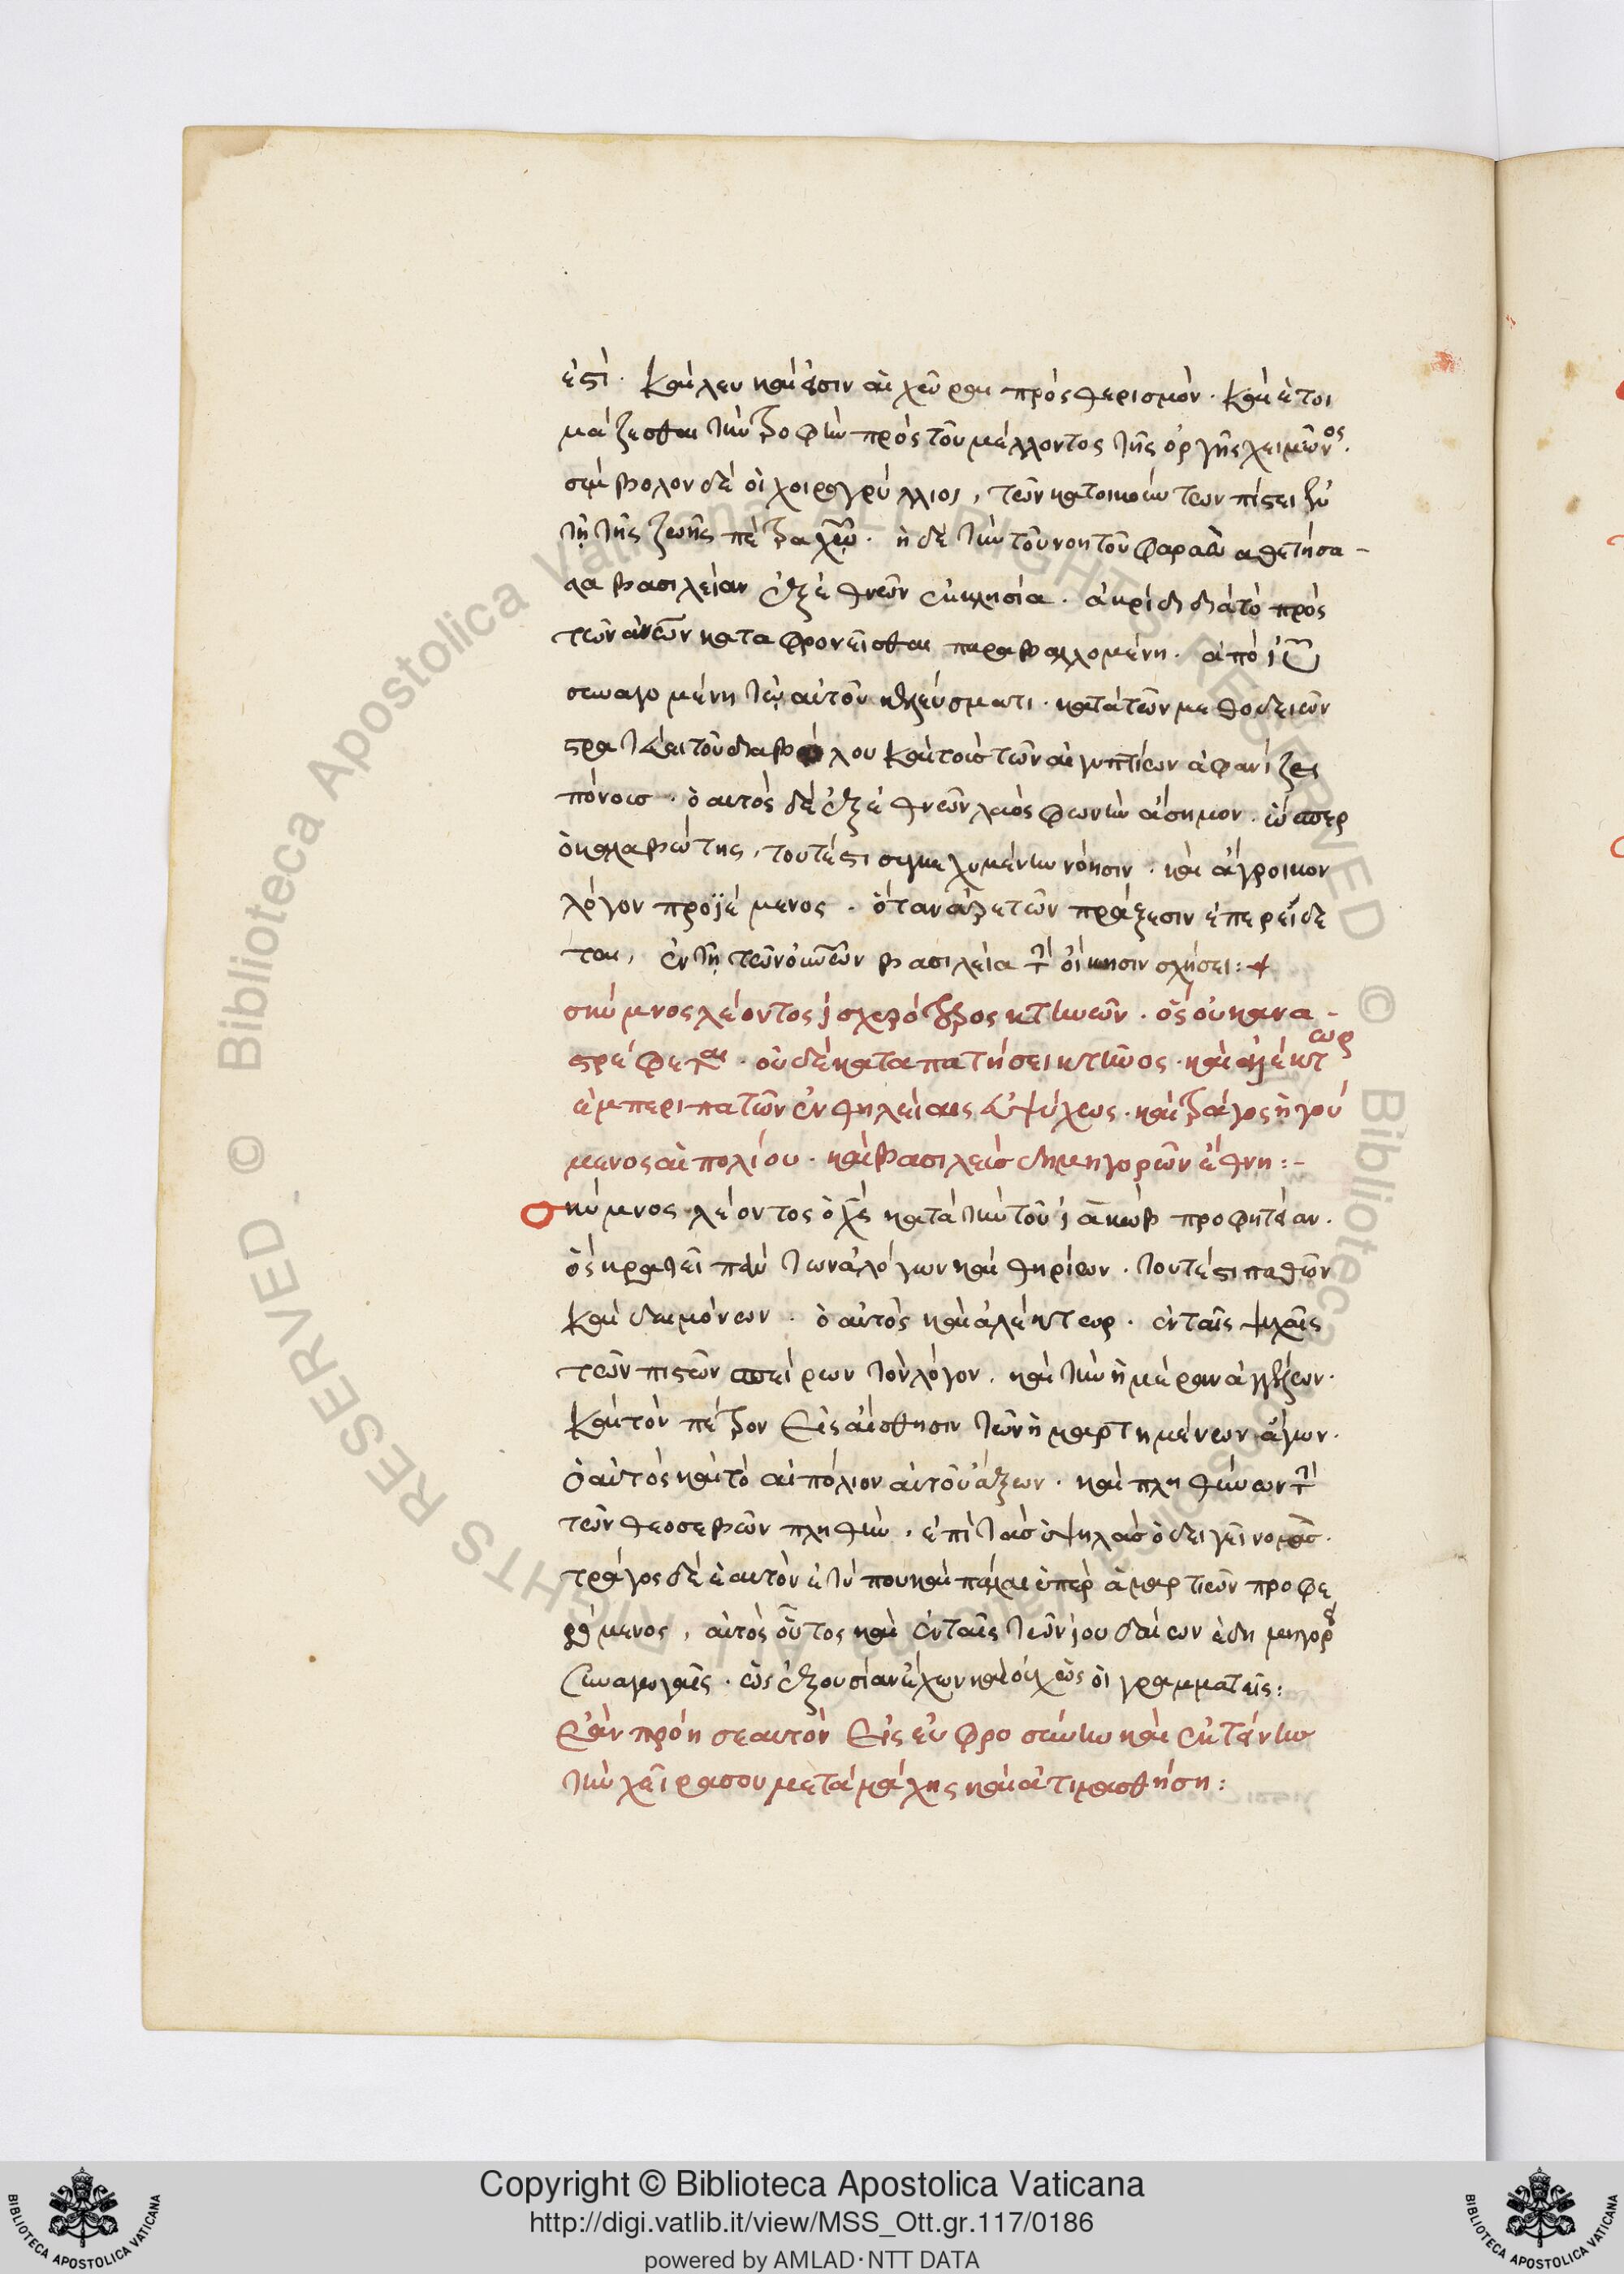 ἐστὶ. καὶ λευκαί εἰσιν αἱ χῶραι πρὸς θερισμὸν. καὶ ἑτοι
μάζεσθαι τὴν τροφὴν πρὸ τοῦ μέλλοντος τῆς ὀργῆς χειμῶνος.
σύμβολον δὲ οἱ χοιρογρύλλιοι, τῶν κατοικούντων πίστει
τῇ τῆς ζωῆς πέτρα χῶ. ἡ δὲ τὴν τοῦ νοητοῦ φαραὼ ἀθετήσα-
σα βασιλείαν ἐξ ἐθνῶν ἐκκλησία. ἀκρίδι διὰ τὸ πρὸς
τῶν ἀνῶν καταφρονεῖσθαι παραβαλλομένη. ἀπὸ
συναγομένη τῷ αὐτοῦ κελεύσματι. κατὰ τῶν μεθοδειῶν
στρατεύει τοῦ διαβόλου καὶ τοῖς τῶν αἰγυπτίων ἀφανίζει
πόνοις. ὁ αὐτὸς δὲ ἐξ ἐθνῶν λαὸς φωνὴν ἄσημον. ὥσπερ
ὁ καλαβώτης, τουτέστι συγκεχυμένην νόησιν. καὶ ἄγροικον
λόγον προϊέμενος. ὅταν ἀρετῶν πράξεσιν ἐπερείδε
ται, ἐν τῇ τῶν οὐνῶν βασιλεία τὴν οἴκησιν σχήσει:
σκύμνος λέοντος ἰσχυρότερος κτηνῶν. ὃς οὐκ ἀνα-
στρέφεται. οὐδὲ καταπατήσει κτῆνος. καὶ ἀλέκτωρ
ἐμπεριπατῶν ἐν θηλείαις εὐψύχως. καὶ τράγος ἡγού
μενος αἰπολίου. καὶ βασιλεὺς δημηγορῶν ἔθνη:-
Σκύμνος λέοντος ὁ χς κατὰ τὴν τοῦ ἰακὼβ προφητείαν.
ὃς κρατεῖ πάντων ἀλόγων καὶ θηρίων. τουτέστι παθῶν
καὶ δαιμόνων. ὁ αὐτὸς καὶ ἀλέκτωρ. ἐν ταῖς ψυχαῖς
τῶν πιστῶν σπείρων τὸν λόγον. καὶ τὴν ἡμέραν ἀγγέλλων.
καὶ τὸν πέτρον εἰς αἴσθησιν τῶν ἡμαρτημένων ἄγων.
ὁ αὐτὸς καὶ τὸ αἰπόλιον αὐτοῦ ἄξων. καὶ πληθύνων τὴν
τῶν θεοσεβῶν πληθὺν. ἐπὶ τὰς ὑψηλὰς ὁδηγεῖ νομάς.
τράγος δὲ ἑαυτὸν ἐν τύπου καὶ πάλαι ὑπὲρ ἁμαρτιῶν προφε
ρόμενος, αὐτὸς οὗτος καὶ ἐν ταῖς τῶν ἰουδαίων ἐδημηγόρει
συναγωγαῖς. ὡς ἐξουσίαν ἔχων καὶ οὐχ ὡς οἱ γραμματεῖς:
ἐὰν πρόη σεαυτὸν εἰς εὐφροσύνην καὶ ἐκτείνης
τὴν χεῖρά σου μετὰ μάχης καὶ ἀτιμασθήση:
Copyright © Biblioteca Apostolica Vaticana
http://digi.vatlib.it/view/MSS_Ott.gr.117/0186
powered by AMLAD·NTT DATA